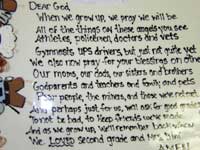 DEAR GOD,
When we grow up, we pray we will be
All of the things on these angels you see
Athletes, policemen, doctors and vets
Gymnasts, UPS drivers, but just not quite yet
We also now pray for your blessings on other
Our moms, our dads, our sisters and brothers
Godparents and teachers and family and pets
Poor people, the
And perhaps just for us, we'll ask for good grades
To not be bad, to keep friends we've made
And as we grow up, we'll remember back
We LOVED second grade and Mrs.
AMEN